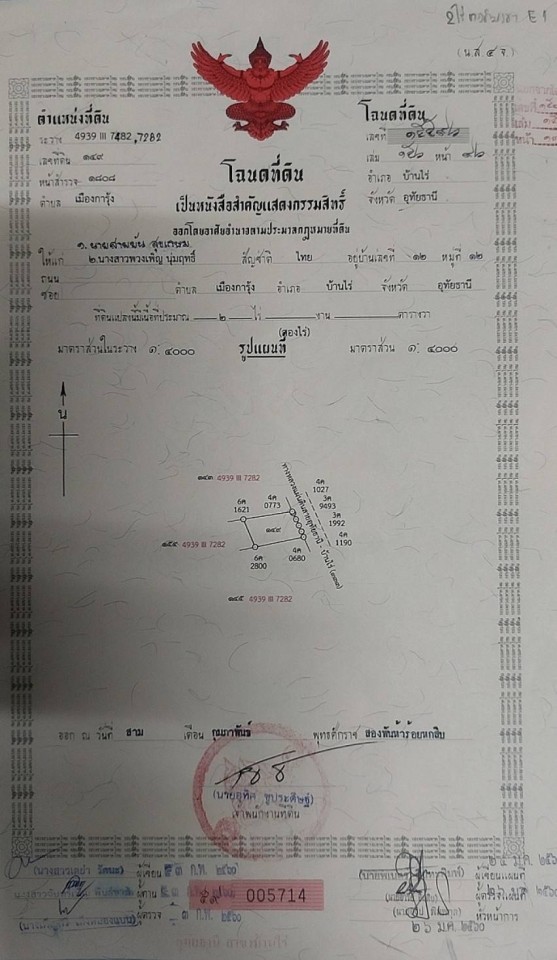 E 1
(น.ส.๔ จ.)
ตำแหน่งที่ดิน
ระวาง 4939 III 7282
เลขที่ดิน ๑๔๙
หน้าสำรวจ ๑๘๐๘
ตำบล เมืองการุ้ง
โฉนดที่ดิน
เลขที่
เล่ม หน้า
อำเภอ บ้านไร่
จังหวัด อุทัยธานี
โฉนดที่ดิน
เป็นหนังสือสำคัญแสดงกรรมสิทธิ์
ออกโดยอาศัยอำนาจตามประมวลกฎหมายที่ดิน
ให้แก่ ๒.นางสาวพวงเพ็ญ นุ่มฤทธิ์ สัญชาติ ไทย อยู่บ้านเลขที่ ๑๒ หมู่ที่ ๑๒
ถนน
ซอย ตำบล เมืองการุ้ง อำเภอ บ้านไร่ จังหวัด อุทัยธานี
ที่ดินแปลงนี้มีเนื้อที่ประมาณ ๒ ไร่ งาน ตารางวา
(สองไร่)
มาตราส่วนในระวาง ๑: ๔๐๐๐ รูปแผนที่ มาตราส่วน ๑: ๔๐๐๐
น
๑๔๓ 4939 III 7282
ทางหลวงแผ่นดินสายอุทัยธานี - บ้านไร่
4ค
1027
3ค
9493
3ค
1992
4ค
1190
6ค
1621
4ค
0773
๑๔๙
๑๕๔ 4939 III 7282
6ค
2800
4ค
0680
๑๔๕ 4939 III 7282
ออก ณ วันที่ สาม เดือน กุมภาพันธ์ พุทธศักราช สองพันห้าร้อยหกสิบ
(นายอุทิศ ชูประดิษฐ์)
เจ้าพนักงานที่ดิน
ผู้เขียน ๓ ก.พ. ๒๕๖๐
ผู้ทาน
ผู้ตรวจ ๓ ก.พ. ๒๕๖๐
005714
ผู้เขียนแผนที่
ผู้ตรวจแผนที่
หัวหน้าการ
๒๖ ม.ค. ๒๕๖๐